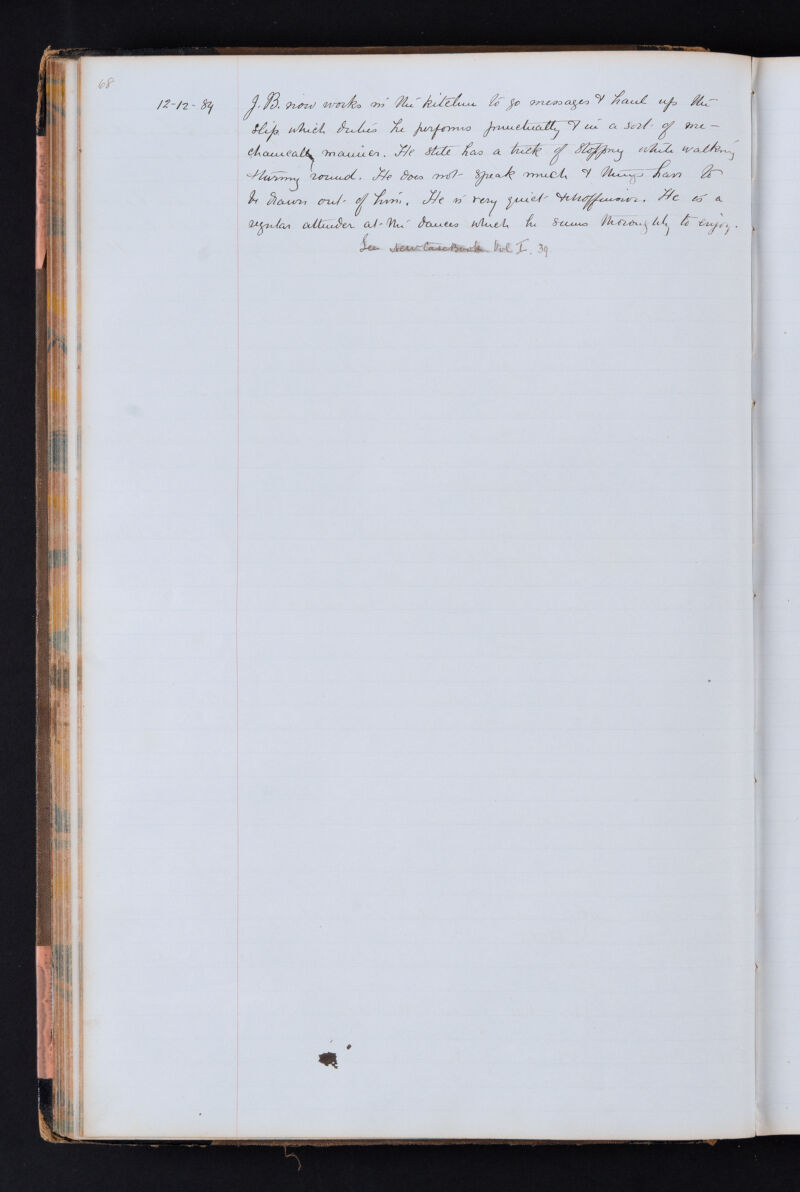 68
12-12-84 J. B. now works in the kitchen to go messages & haul up the
slip which duties he performs punctually & in a sort of me-
chanically manner. He still has a trick of stopping while walking
& turning round. He does not speak much & things have to
be drawn out of him. He is very quiet & inoffensive. He is a
regular attender at the dances which he seems thoroughly to enjoy.
See New Case Book Vol I. 39